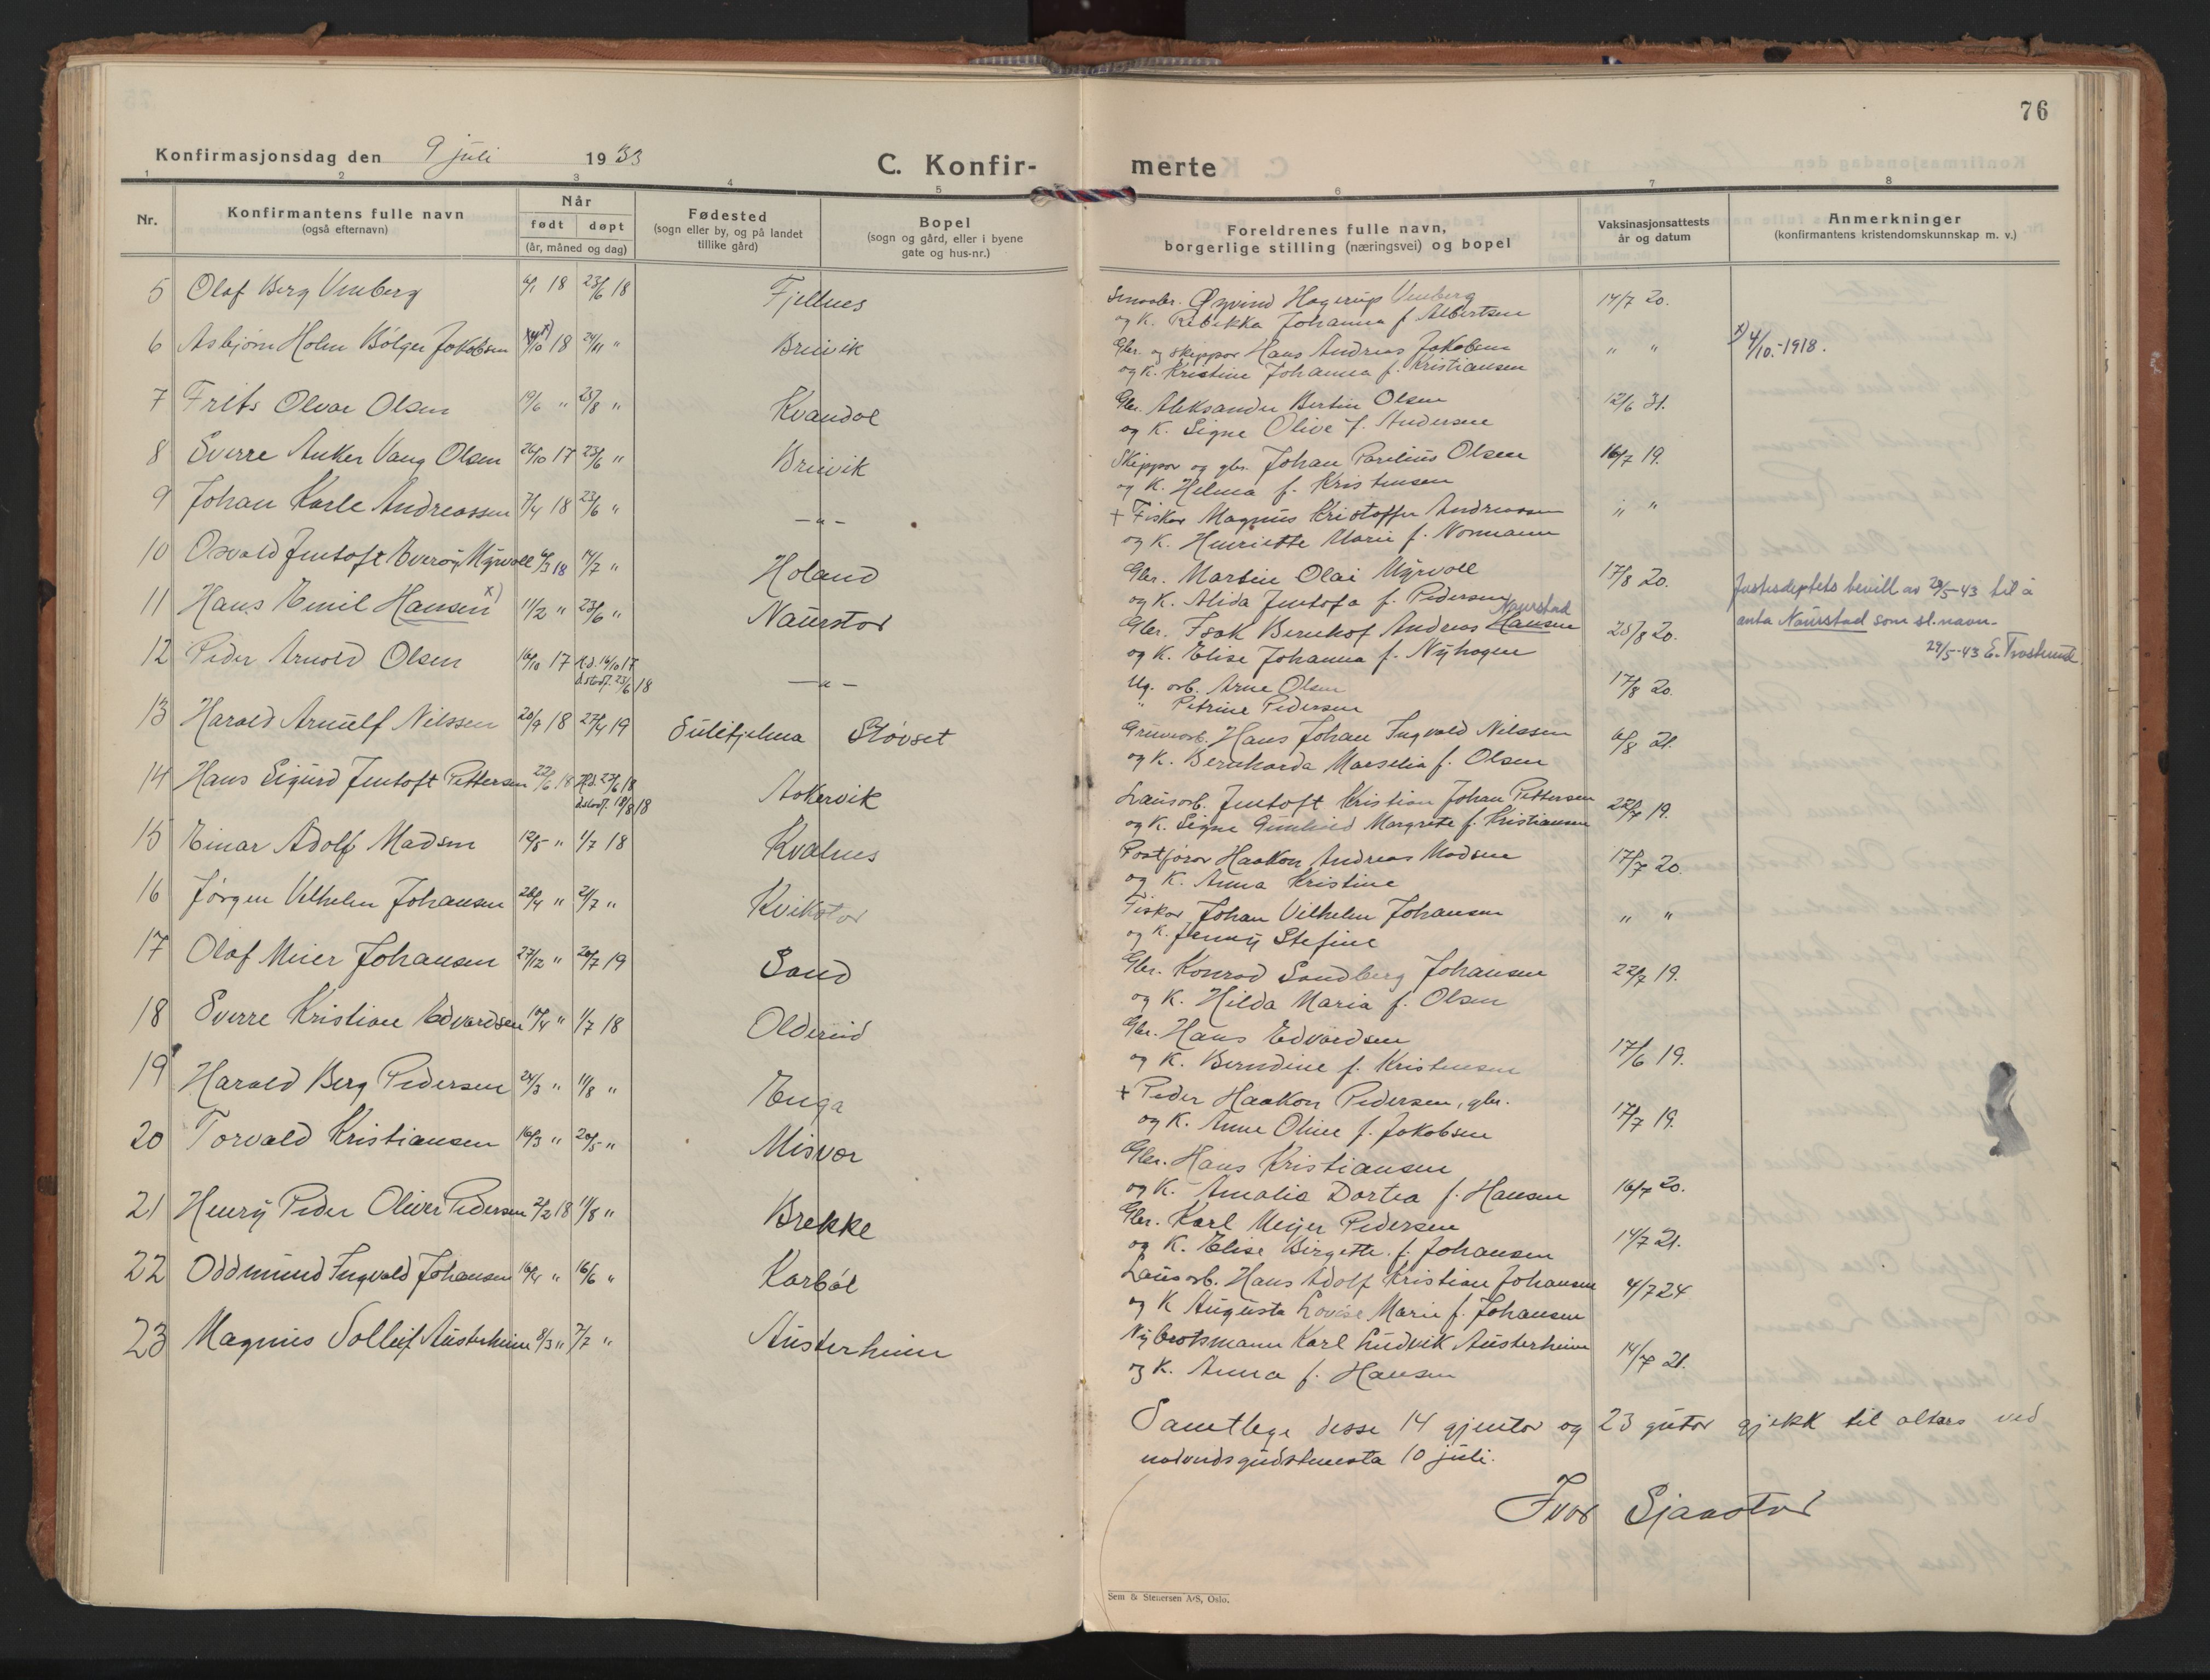 76
Konfirmasjonsdag den 9 juli 1933
C. Konfir-
merte
1 2 3 4 5 6 7 8
Nr.
Konfirmantens fulle navn
(også efternavn)
Når
født døpt
(år, måned og dag)
Fødested
(sogn eller by, og på landet
tillike gård)
Bopel
(sogn og gård, eller i byene
gate og hus-nr.)
Foreldrenes fulle navn,
borgerlige stilling (næringsvei) og bopel
Vaksinasjonsattests
år og datum
Anmerkninger
(konfirmantens kristendomskunnskap m. v.)
5 Olaf Berg Venberg 6/1 18 23/6 18 Fjellnes
Smaabr. Øyvind Hagerup Venberg 14/7 20.
og K. Rebekka Johanna f. Albertsen
6 Asbjørn Holm Bólger Jakobsen x) 18 24/11 " Breivik
Gbr. og skippar Hans Andreas Jakobsen " " x) 4/10.-1918.
og K. Kristine Johanna f. Kristiansen
7 Frits Olvar Olsen 19/6 " 25/8 " Kvandal
Gbr. Aleksander Bertin Olsen 12/6 31.
og K. Signe Olive f. Andersen
8 Sverre Anker Vang Olsen 26/10 17 23/6 " Breivik
Skippar og gbr. Johan Parelius Olsen 16/7 19.
og K. Helma f. Kristensen
9 Johan Karle Andreassen 7/4 18 23/6 " —"—
+ Fiskar Magnus Kristoffer Andreassen " "
og K. Henriette Marie f. Normann
10 Osvald Jentoft Everøy Myrvoll 6/3 18 14/7 " Holand
Gbr. Martin Olai Myrvoll 17/8 20.
og K. Alida Jentofa f. Pedersen
11 Hans Emil Hansen x) 11/2 " 23/6 " Naurstad
Naurstad
Gbr. Isak Bernhof Andreas Hansen 25/8 20.
og K. Elise Johanna f. Nyhagen
Justisdeptets bevill av 20/5-43 til å
anta Naurstad som sl.navn.
29/5-43 E. Troshund
12 Peder Arnold Olsen 16/10 17 H.d. 16/10 17 —"—
d.stadf. 23/6 18
Ug. arb. Arne Olsen 17/8 20.
" Petrine Pedersen
13 Harald Arnulf Nilssen 20/9 18 27/4 19 Sulitjelma Støvset
Gruvearb. Hans Johan Ingvald Nilssen 6/8 21.
og K. Bernharda Marselia f. Olsen
14 Hans Sigurd Jentoft Pettersen 22/6 18 H.d. 23/6 18 Askervik
d.stadf. 18/8 18
Lausarb. Jentoft Kristian Johan Pettersen 22/7 19.
og K. Signe Gunhild Margrete f. Kristiansen
15 Einar Adolf Madsen 12/5 " 1/7 18 Kvalnes
Postførar Haakon Andreas Madsen 17/7 20.
og K. Anna Kristine
16 Jørgen Vilhelm Johansen 28/4 " 21/7 " Kvikstad
Fiskar Johan Vilhelm Johansen " "
og K. Jenny Stefine
17 Olaf Meier Johansen 27/12 " 20/7 19 Sand
Gbr. Konrad Sandberg Johansen 22/7 19.
og K. Hilda Maria f. Olsen
18 Sverre Kristian Edvardsen 10/4 " 1/7 18 Oldereid
Gbr. Hans Edvardsen 17/6 19.
og K. Berndine f. Kristensen
19 Harald Berg Pedersen 24/3 " 11/8 " Enga
+ Peder Haakon Pedersen, gbr. 17/7 19.
og K. Anne Oline f. Jakobsen
20 Torvald Kristiansen 16/3 " 20/5 " Misvær
Gbr. Hans Kristiansen 16/7 20.
og K. Amalia Dortea f. Hansen
21 Henry Peder Oliver Pedersen 2/2 18 11/8 " Brekke
Gbr. Karl Meyer Pedersen 14/7 21.
og K. Elise Birgette f. Johansen
22 Oddmund Ingvald Johansen 16/4 " 16/6 " Karbøl
Lausarb. Hans Adolf Kristian Johansen 4/7 24
og K Augusta Lovise Marie f. Johansen
23 Magnus Solleif Austerheim 8/3 " 7/7 " Austerheim
Nybrotsmann Karl Ludvik Austerheim 14/7 21.
og K. Anna f. Hansen
Samtlege desse 14 gjentor og 23 gutar gjekk til altars ved
natverdsgudstenesta 10 juli.
Ivar Sjaastad
Sem & Stenersen A/S, Oslo.